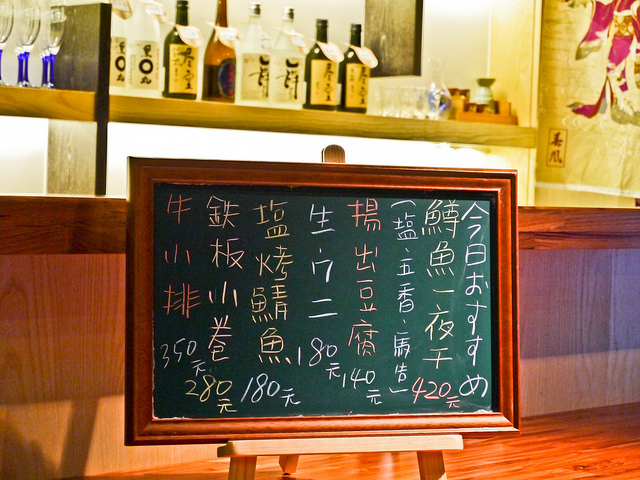 今日おすすめ
鱒魚一夜干 420元
(塩.五香.馬告)
揚出豆腐 140元
生ウニ 180元
塩烤鯖魚 180元
鉄板小卷 280元
牛小排 350元